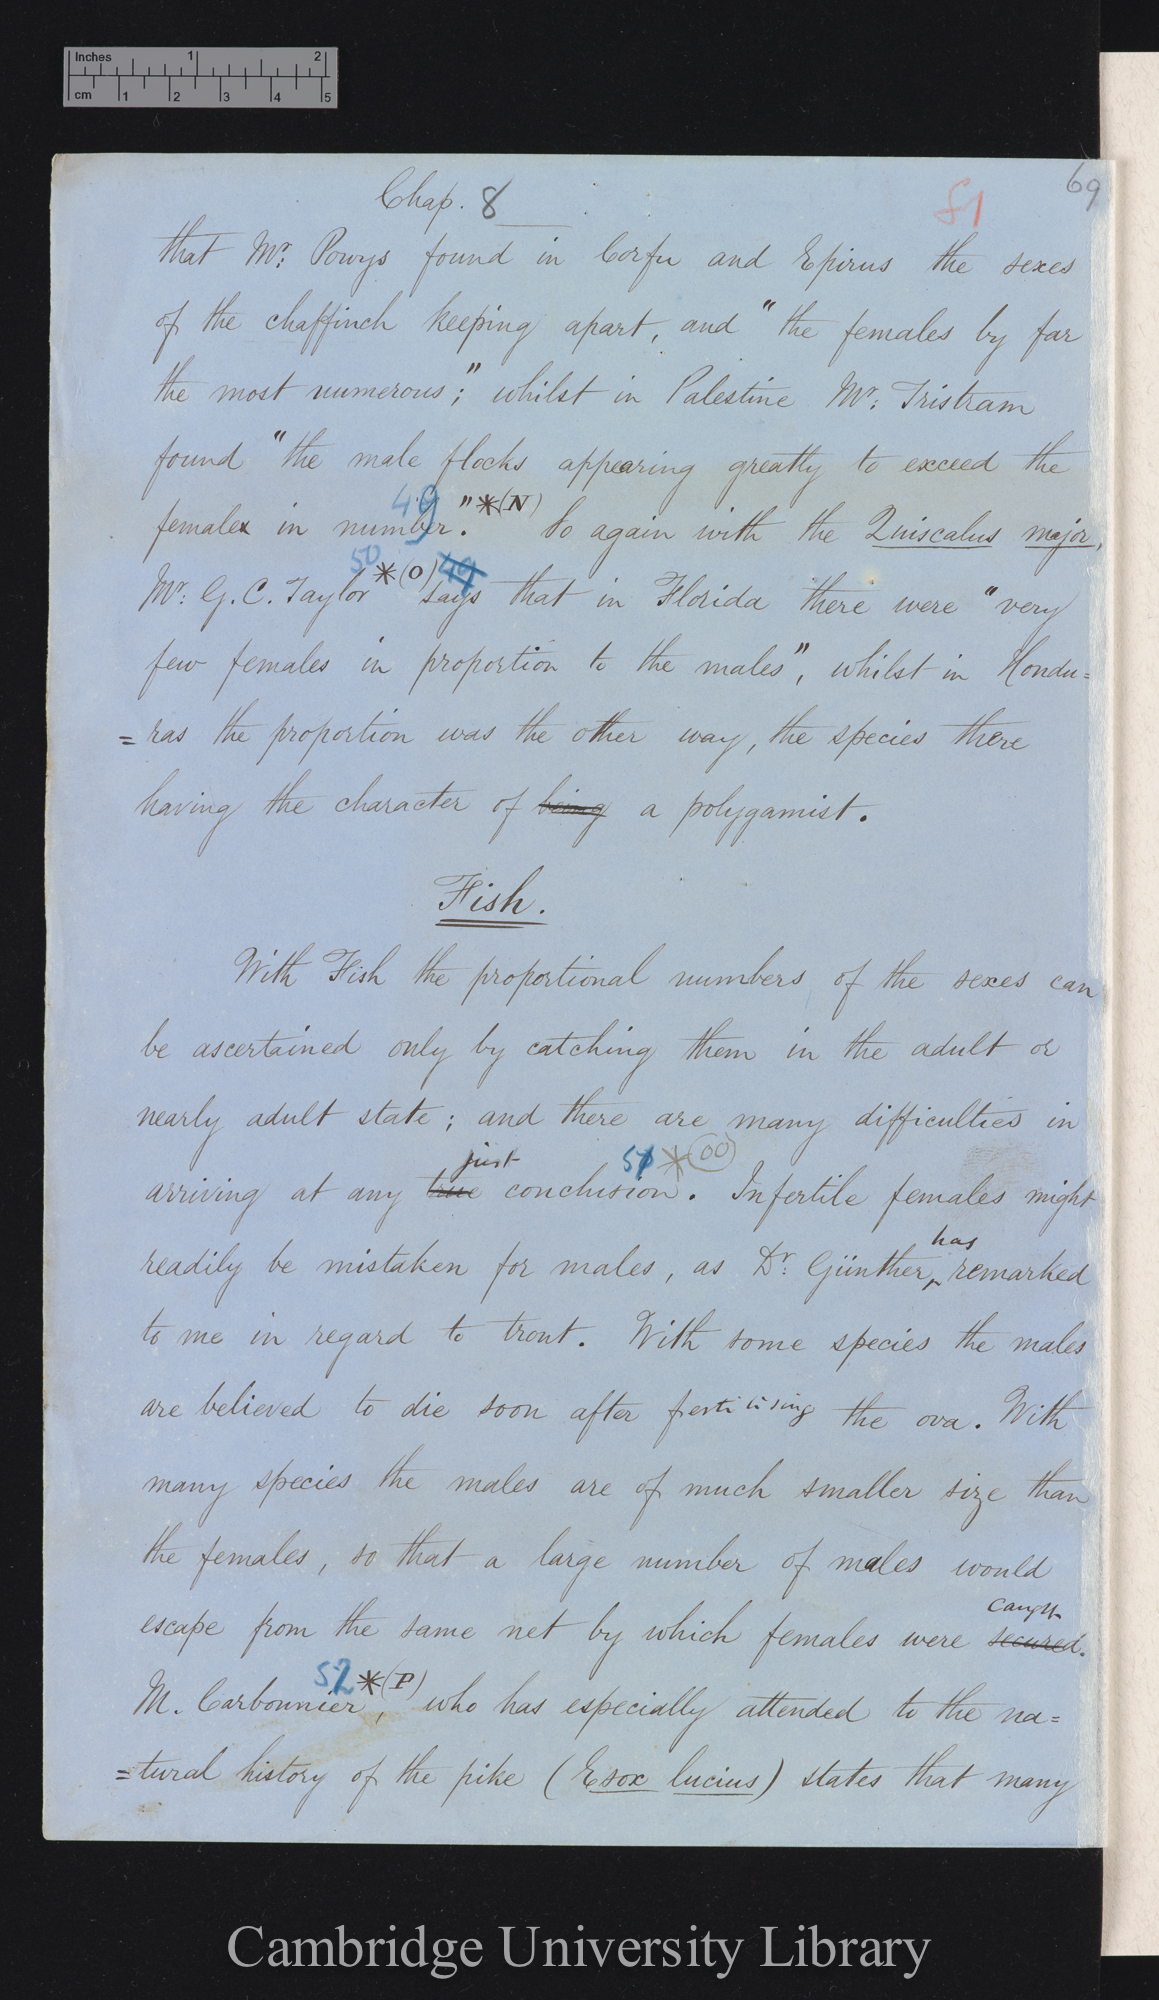 Inches 1 2
cm 1 2 3 4 5
Chap. 8 81 69
that Mr: Powys found in Corfu and Epirus the sexes
of the chaffinch keeping apart, and "the females by far
the most numerous;" whilst in Palestine Mr: Tristram
found "the male flocks appearing greatly to exceed the
49
female in number." *(N) So again with the Quiscalus major,
50 49
Mr: G. C. Taylor *(O) says that in Florida there were "very
few females in proportion to the males", whilst in Hondu=
=ras the proportion was the other way, the species there
having the character of being a polygamist.
Fish.
With Fish the proportional numbers of the sexes can
be ascertained only by catching them in the adult or
nearly adult state; and there are many difficulties in
just 51 *(OO)
arriving at any true conclusion. Infertile females might
has
readily be mistaken for males, as Dr: Günther, remarked
to me in regard to trout. With some species the males
are believed to die soon after fertilising the ova. With
many species the males are of much smaller size than
the females, so that a large number of males would
caught
escape from the same net by which females were secured.
52 *(P)
M. Carbonnier, who has especially attended to the na=
=tural history of the pike (Esox lucius) states that many
Cambridge University Library